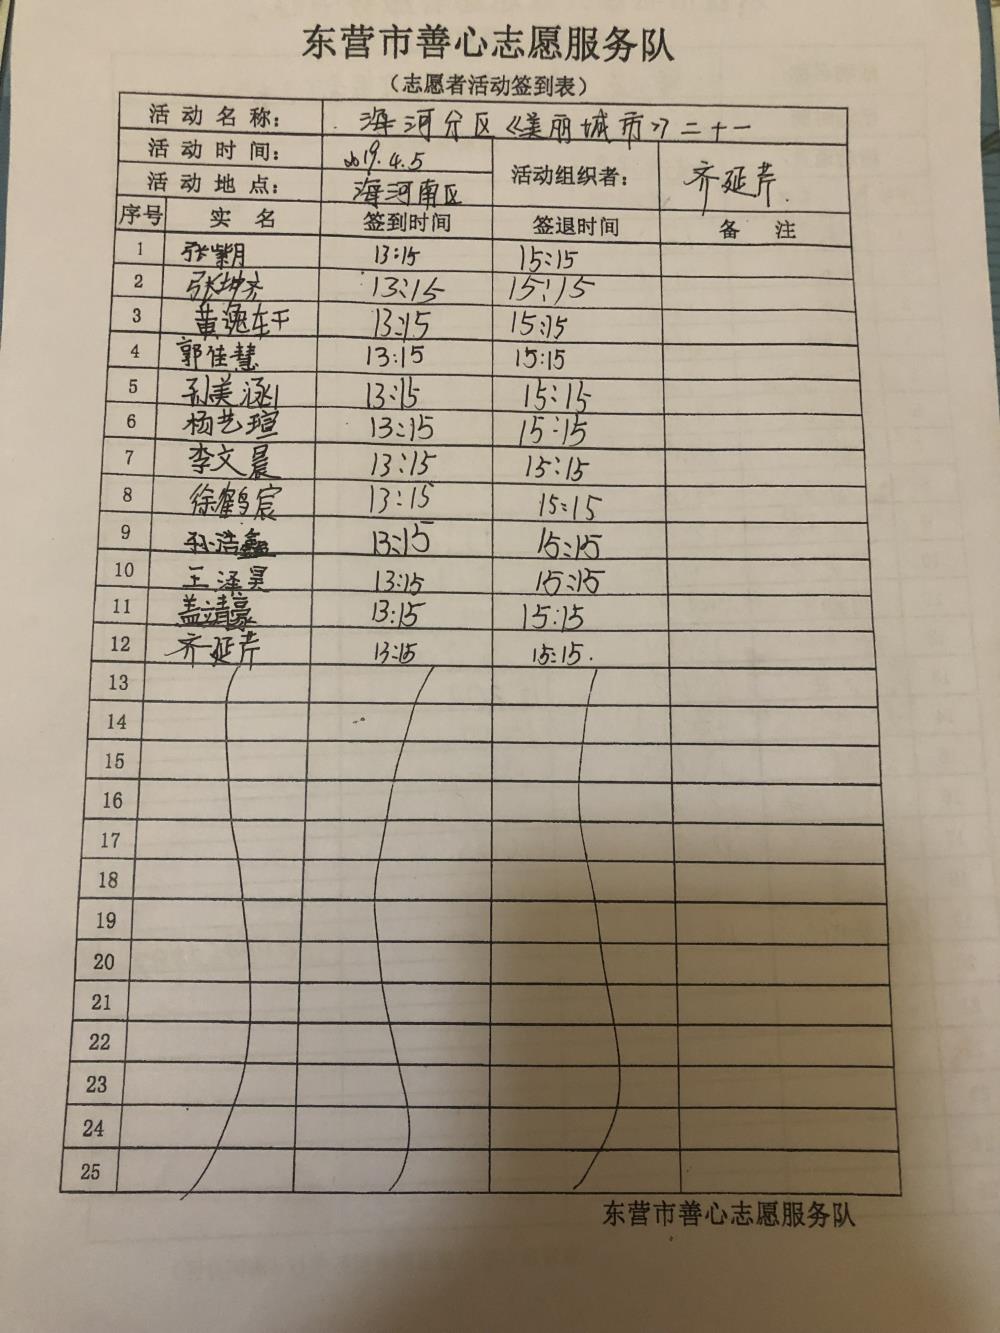 东营市善心志愿服务队
（志愿者活动签到表）
活动名称： 海河分区《美丽城市》二十一
活动时间： 2019.4.5
活动地点： 海河南区
活动组织者： 齐延芹.
序号 实名 签到时间 签退时间 备注
1 张紫月 13:15 15:15
2 张坤齐 13:15 15:15
3 黄 13:15 15:15
4 郭佳慧 13:15 15:15
5 孙美涵 13:15 15:15
6 杨艺瑄 13:15 15:15
7 李文晨 13:15 15:15
8 徐鹤宸 13:15 15:15
9 孙浩鑫 13:15 15:15
10 王泽昊 13:15 15:15
11 盖靖豪 13:15 15:15
12 齐延芹 13:15 15:15.
13
14
15
16
17
18
19
20
21
22
23
24
25
东营市善心志愿服务队